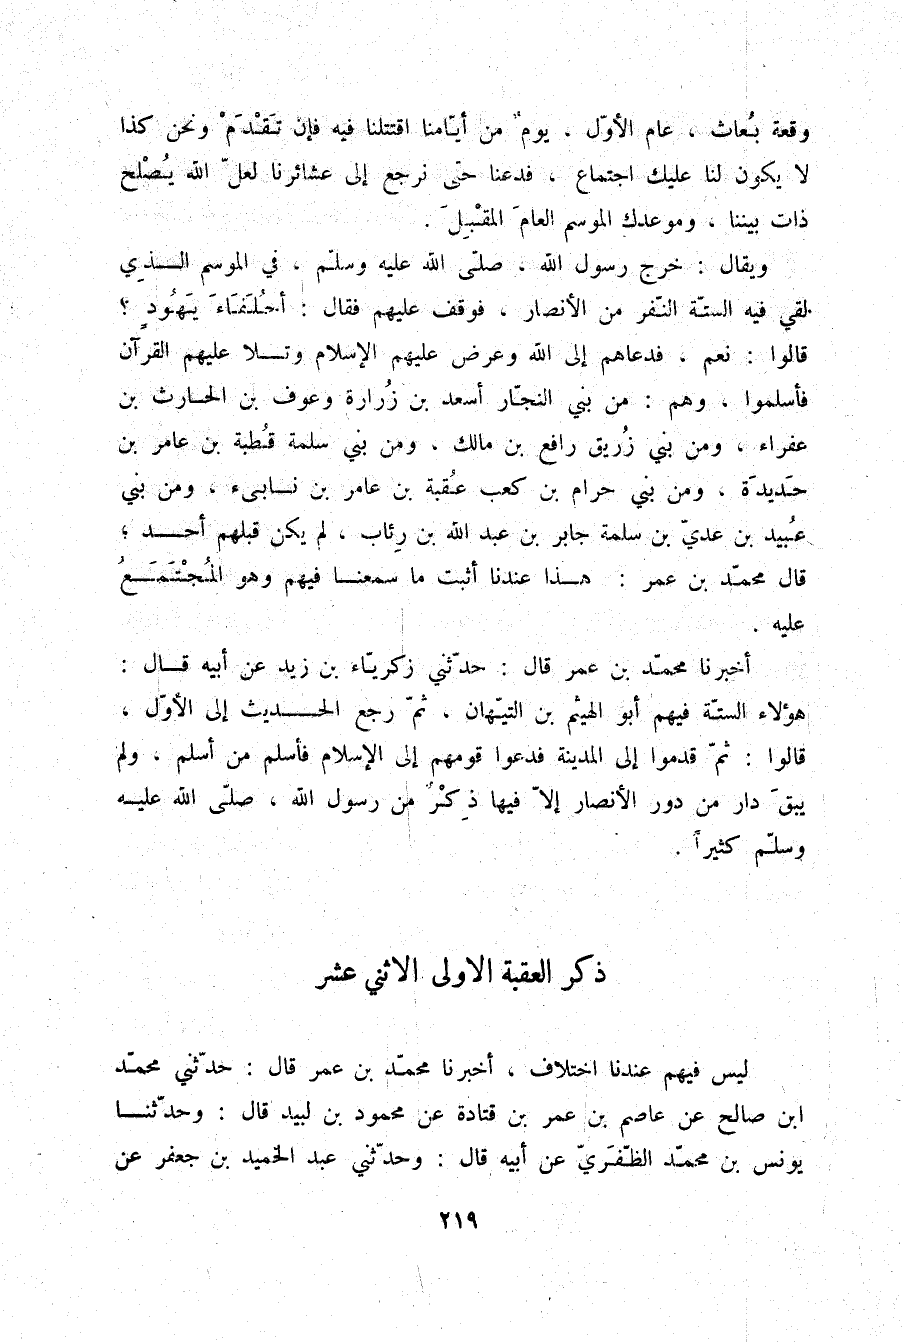 وقعة بُعاث ، عام الأوّل ، يومٌ من أيّامنا اقتتلنا فيه فإن تَقْدَمْ ونحن كذا
لا يكون لنا عليك اجتماع ، فدعنا حتّى نرجع إلى عشائرنا لعلّ الله يُصْلح
ذات بيننا ، وموعدك الموسم العامَ المقْبِلَ .
ويقال : خرج رسول الله ، صلّى الله عليه وسلّم ، في الموسم الــذي
لقي فيه الستّة النّفر من الأنصار ، فوقف عليهم فقال : أحُلَفَاءَ يَهُودٍ ؟
قالوا : نعم ، فدعاهم إلى الله وعرض عليهم الإسلام وتــلا عليهم القرآن
فأسلموا ، وهم : من بني النجّار أسعد بن زُرارة وعوف بن الحارث بن
عفراء ، ومن بني زُريق رافع بن مالك ، ومن بني سلمة قُطبة بن عامر بن
حَديدَة ، ومن بني حرام بن كعب عُقبة بن عامر بن نــابىء ، ومن بني
عُبيد بن عديّ بن سلمة جابر بن عبد الله بن رِئاب ، لم يكن قبلهم أحــد ؛
قال محمّد بن عمر : هــذا عندنا أثبت ما سمعنــا فيهم وهو المُجْتَمَــعُ
عليه .
أخبرنا محمّد بن عمر قال : حدّثني زكريّاء بن زيد عن أبيه قــال :
هؤلاء الستّة فيهم أبو الهيثم بن التيّهان ، ثمّ رجع الحــديث إلى الأوّل ،
قالوا : ثمّ قدموا إلى المدينة فدعوا قومهم إلى الإسلام فأسلم من أسلم ، ولم
يبقَ دار من دور الأنصار إلاّ فيها ذِكْرٌ من رسول الله ، صلّى الله عليــه
وسلّم كثيراً .
ذكر العقبة الاولى الاثني عشر
ليس فيهم عندنا اختلاف ، أخبرنا محمّد بن عمر قال : حدّثني محمّد
ابن صالح عن عاصم بن عمر بن قتادة عن محمود بن لبيد قال : وحدّثنــا
يونس بن محمّد الظّفَريّ عن أبيه قال : وحدّثني عبد الحميد بن جعفر عن
٢١٩